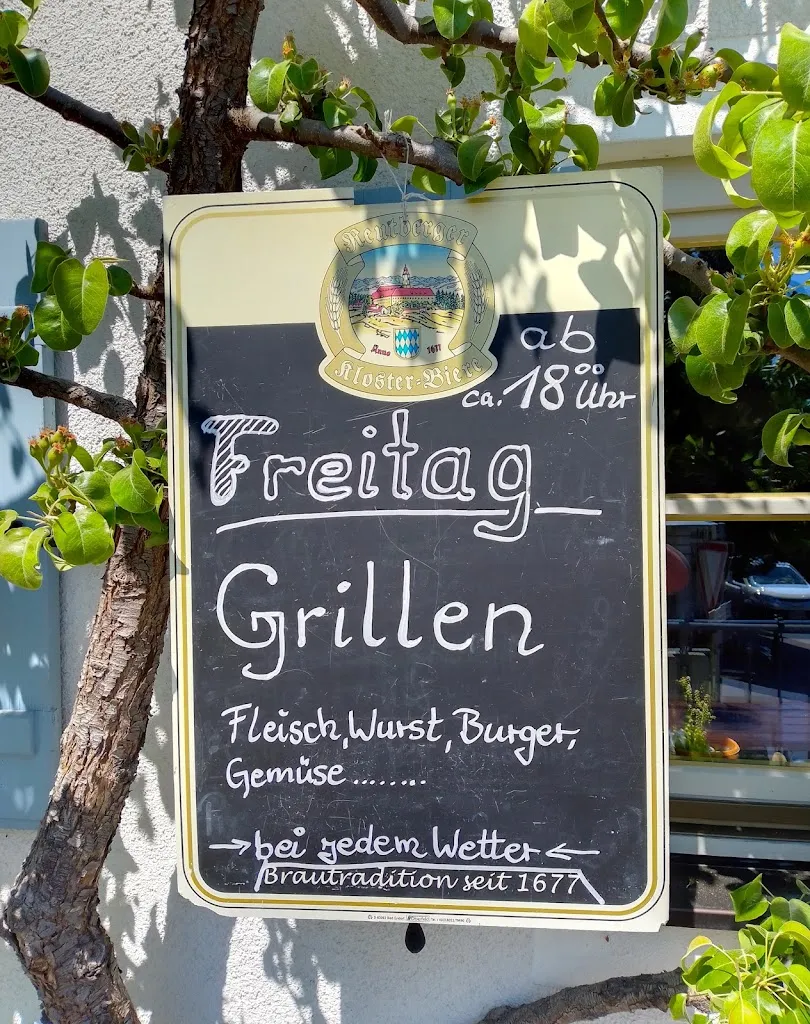 Reutberger
Anno 1677
Kloster-Biere
ab
ca. 18°° Uhr
Freitag
Grillen
Fleisch, Wurst, Burger,
Gemüse ........
→ bei jedem Wetter ←
Brautradition seit 1677